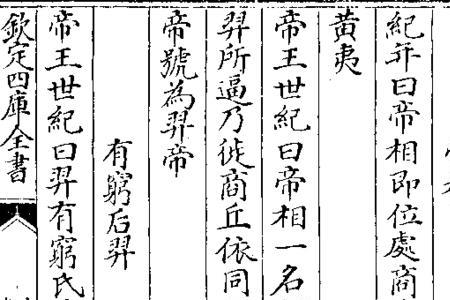 紀年曰帝相即位處商
黄夷
帝王世紀曰帝相一名
羿所逼乃徙商丘依同
帝號為羿帝
有窮后羿
帝王世紀曰羿有窮氏
欽定四庫全書